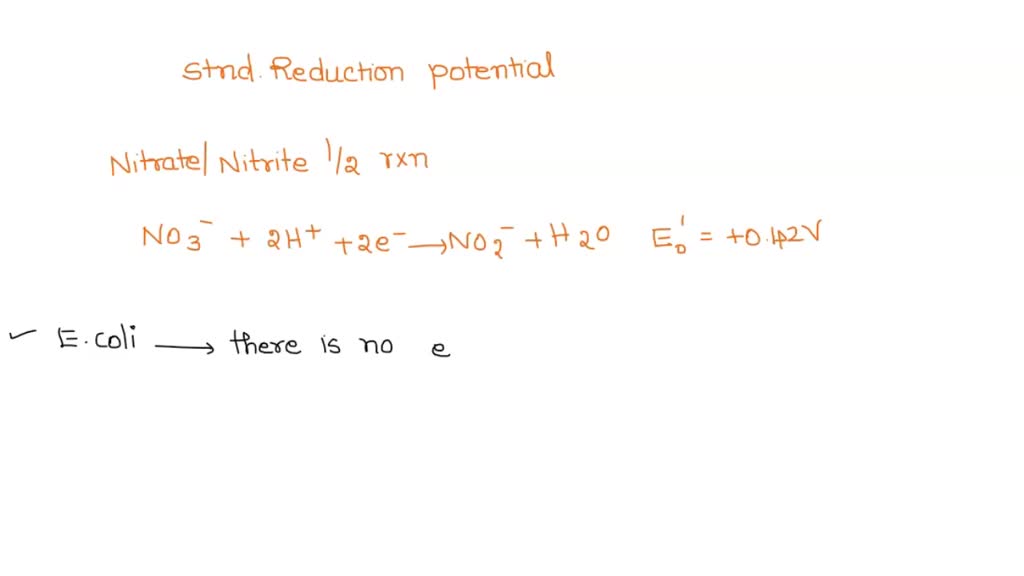 Stnd. Reduction potential
Nitrate/Nitrite 1/2 rxn
NO3⁻ + 2H⁺ + 2e⁻ → NO2⁻ + H2O E₀' = +0.42V
✓ E.coli → there is no e